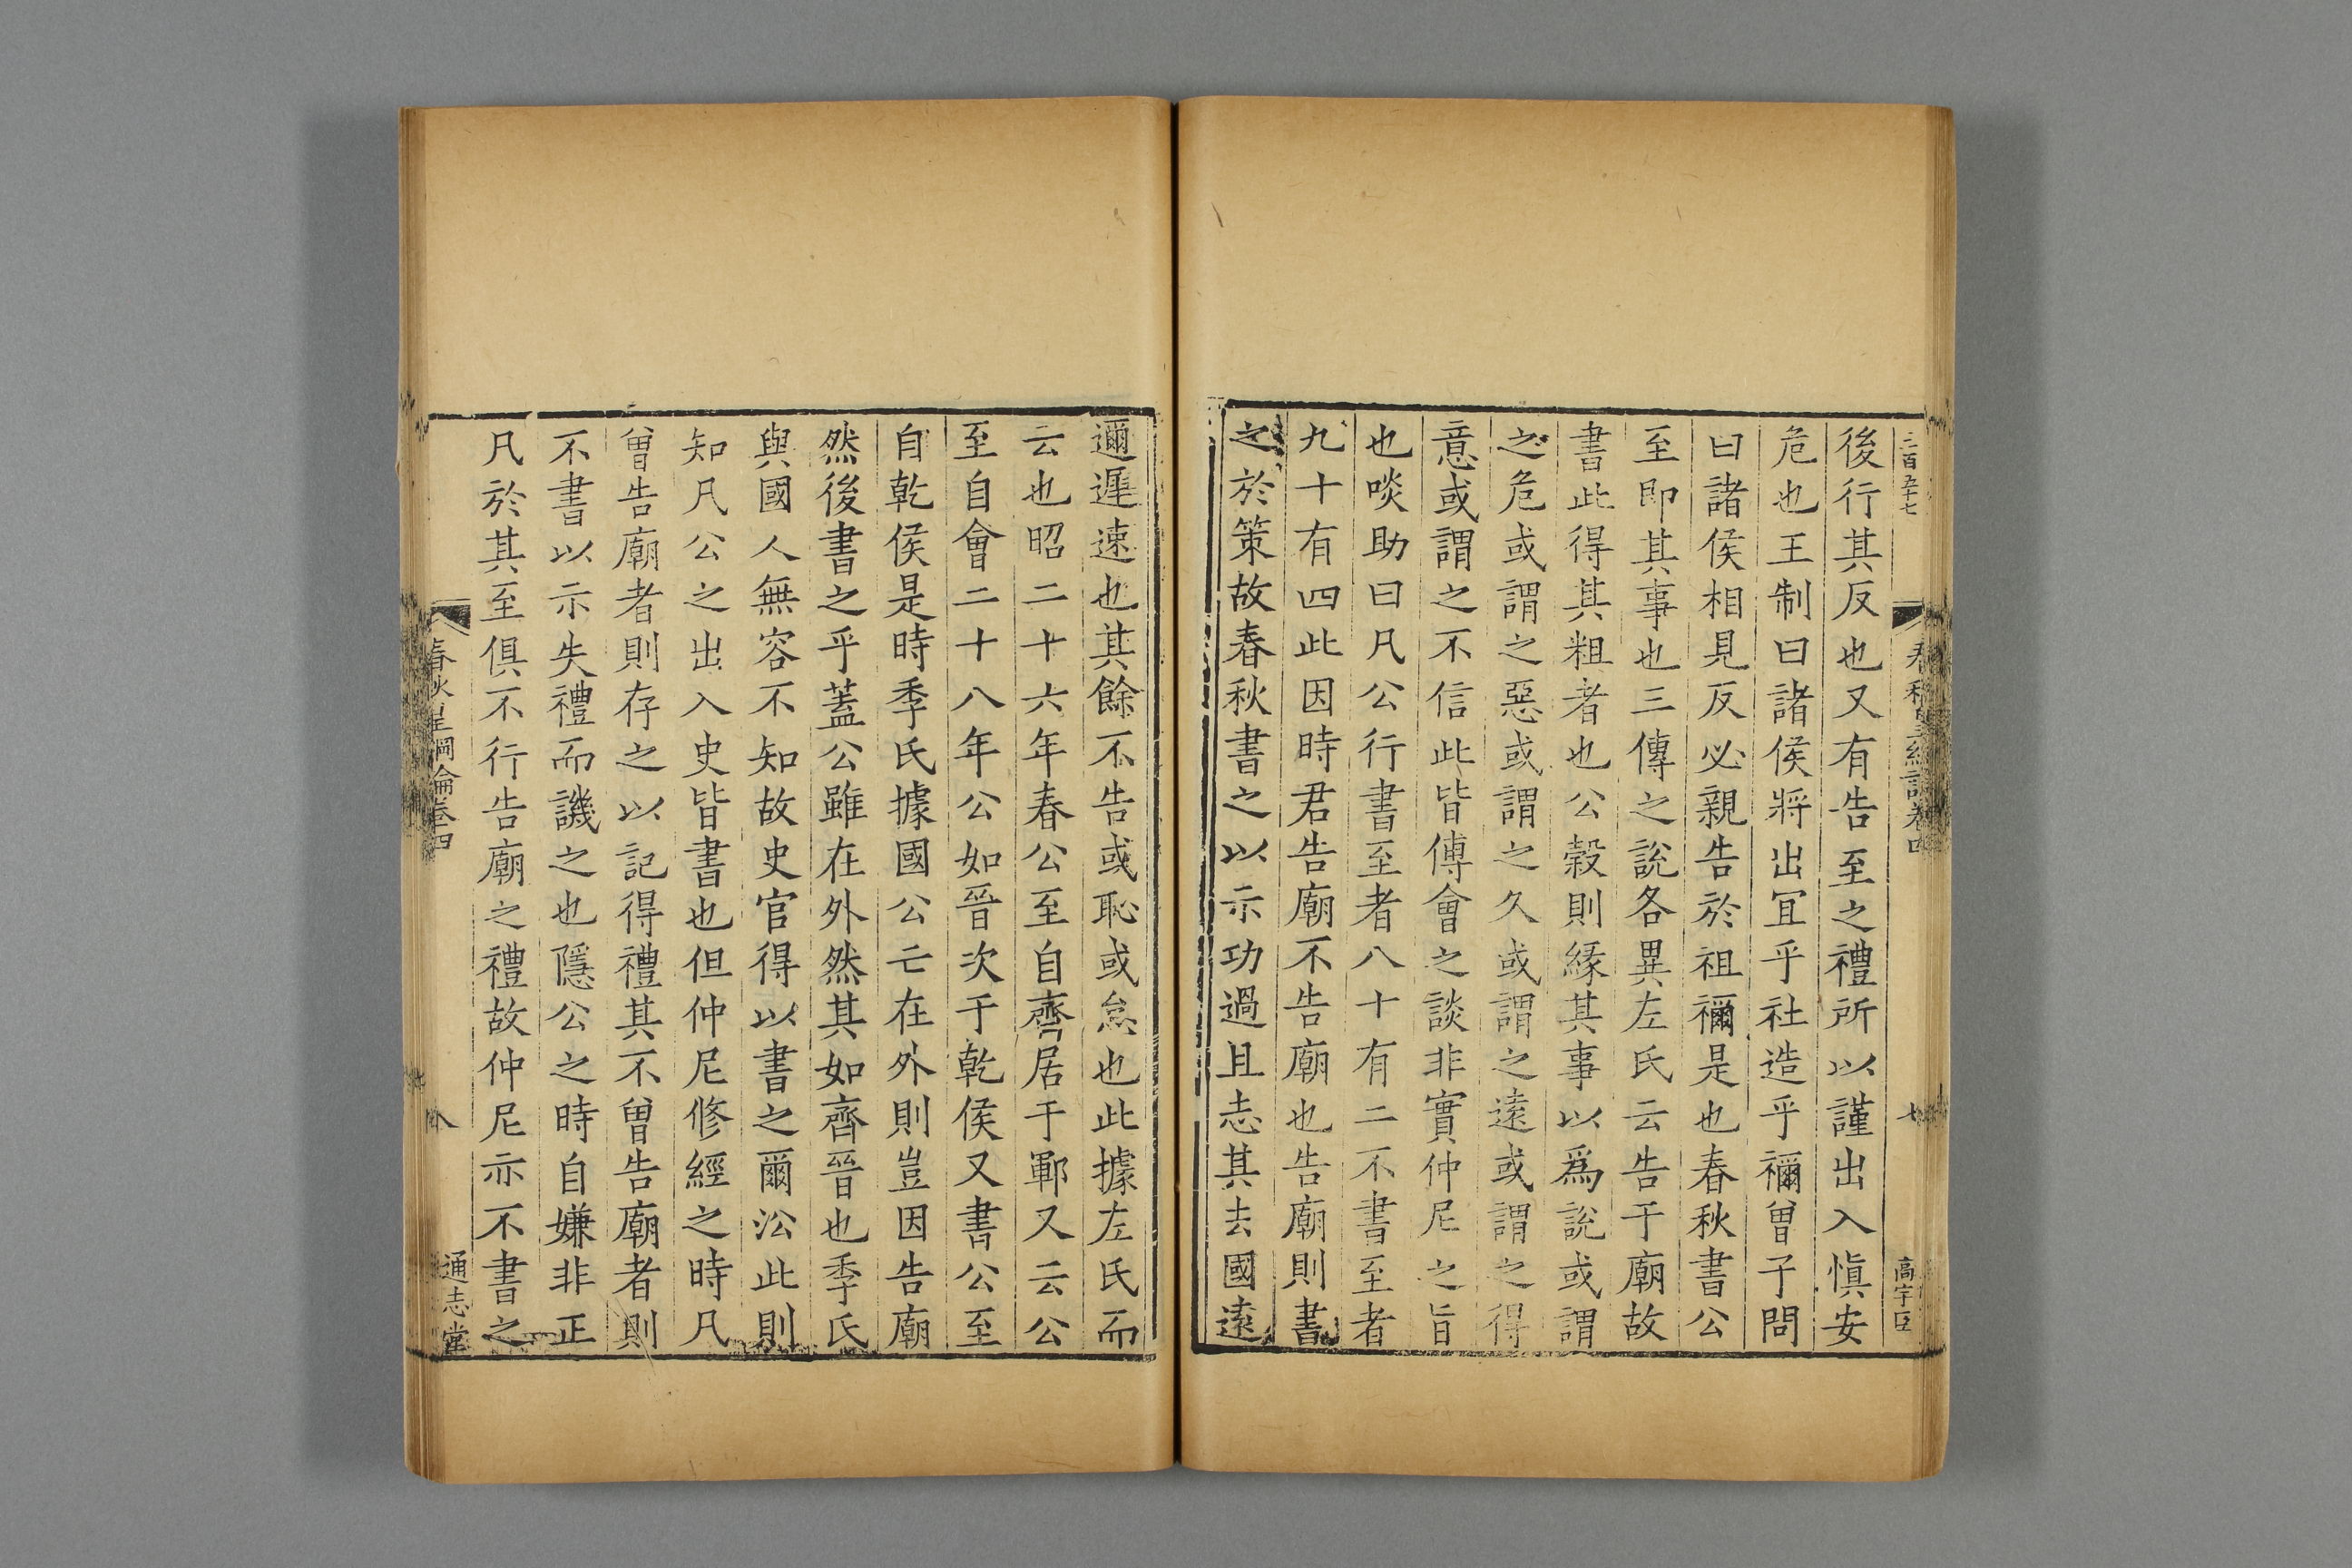 三百五十七
春秋皇綱論卷四
七
高宇臣
後行其反也又有告至之禮所以謹出入愼安
危也王制曰諸侯將出冝乎社造乎禰曾子問
曰諸侯相見反必親告於祖禰是也春秋書公
至即其事也三傳之說各異左氏云告于廟故
書此得其粗者也公榖則緣其事以爲說或謂
之危或謂之惡或謂之久或謂之遠或謂之得
意或謂之不信此皆傅會之談非實仲尼之旨
也啖助曰凡公行書至者八十有二不書至者
九十有四此因時君告廟不告廟也告廟則書
之於策故春秋書之以示功過且志其去國遠
邇遲速也其餘不告或恥或怠也此據左氏而
云也昭二十六年春公至自齊居于鄆又云公
至自會二十八年公如晉次于乾侯又書公至
自乾侯是時季氏據國公亡在外則豈因告廟
然後書之乎蓋公雖在外然其如齊晉也季氏
與國人無容不知故史官得以書之爾㳂此則
知凡公之出入史皆書也但仲尼修經之時凡
曾告廟者則存之以記得禮其不曾告廟者則
不書以示失禮而譏之也隱公之時自嫌非正
凡於其至俱不行告廟之禮故仲尼亦不書之
春秋皇綱論卷四
八
通志堂